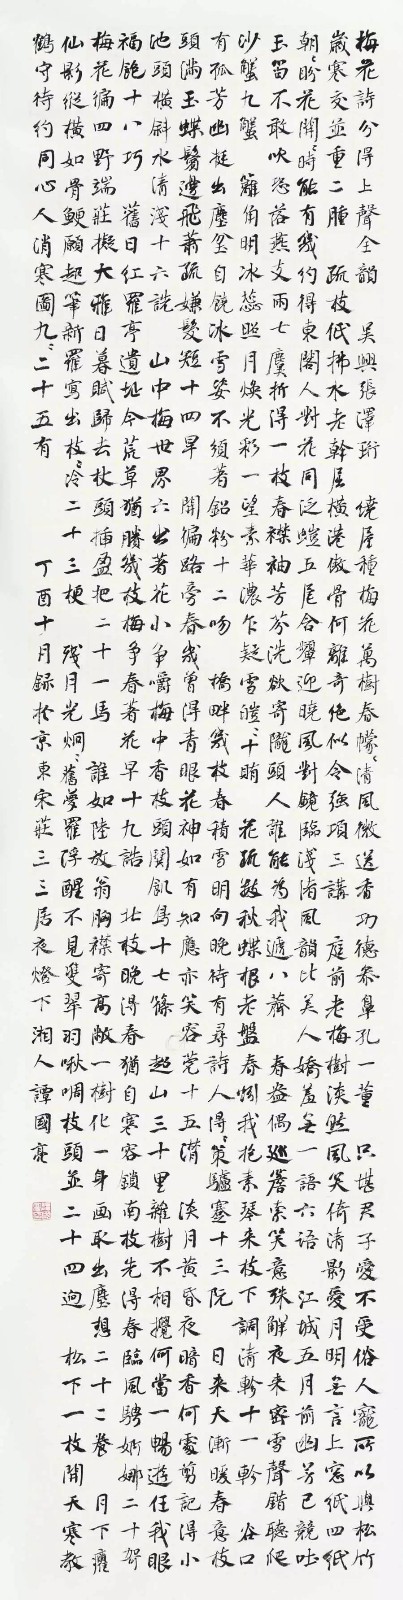 梅花詩分得上聲全韻 吳興張澤珩 繞屋種梅花萬樹春幪〻清風微送香功德參鼻孔一董 只堪君子愛不受俗人寵所以與松竹
歲寒交並重二腫 疏枝低拂水老幹屋橫港傲骨何離奇絕似令強項三講 庭前老梅樹淡然風笑倚清影愛月明無言上窗紙四紙
朝〻盼花開〻時能有幾約得東閣人對花同泛螘五尾 含顰迎曉風對鏡臨淺渚風韻比美人嬌羞無一語六語 江城五月前幽芳已競吐
玉笛不敢吹恐落燕支雨七麌 折得一枝春襟袖芳芬洗欲寄隴頭人誰能為我遞八薺 春盎偶巡簷索笑意殊解夜來密雪聲錯聽爬
沙蟹九蟹 籬伯明冰蕊照月煥光彩一望素華濃乍疑雪皚〻十賄 花疏數秋蝶根老盤春蚓我抱素琴來枝下調清軫十一軫 谷口
有孤芳幽挺出塵坌自饒冰雪姿不須著鉛粉十二吻 橋畔幾枝春積雪明向晚待有尋詩人得〻策驢蹇十三阮 日來天漸暖春意枝
頭滿玉蝶鬢邊飛蕭疏嫌髮短十四旱 開徧路旁春幾曾得青眼花神如有知應亦笑容莞十五潸 淡月黃昏夜暗香何處剪記得小
池頭橫斜水清淺十六銑 山中梅世界六出著花小爭嚼梅中香枝頭閧飢鳥十七篠 超山三十里離樹不相攪何當一暢遊任我眼
福飽十八巧 舊日紅羅亭遺址今荒草猶勝幾枝梅爭春著花早十九皓 北枝晚得春猶自寒容鎖南枝先得春臨風騁婀娜二十哿
梅花徧四野端莊擬大雅日暮賦歸去杖頭插盈把二十一馬 誰如陸放翁胸襟寄高敞一樹化一身画取出塵想二十二養 月下癯
仙影縱橫如骨鯁願超筆新羅寫出枝〻冷二十三梗 殘月光炯〻舊夢羅浮醒不見雙翠羽啾啁枝頭並二十四迥 松下一枝開天寒教
鶴守待約同心人消寒圖九〻二十五有 丁酉十月錄於京東宋莊三三居夜燈下湘人譚國亮